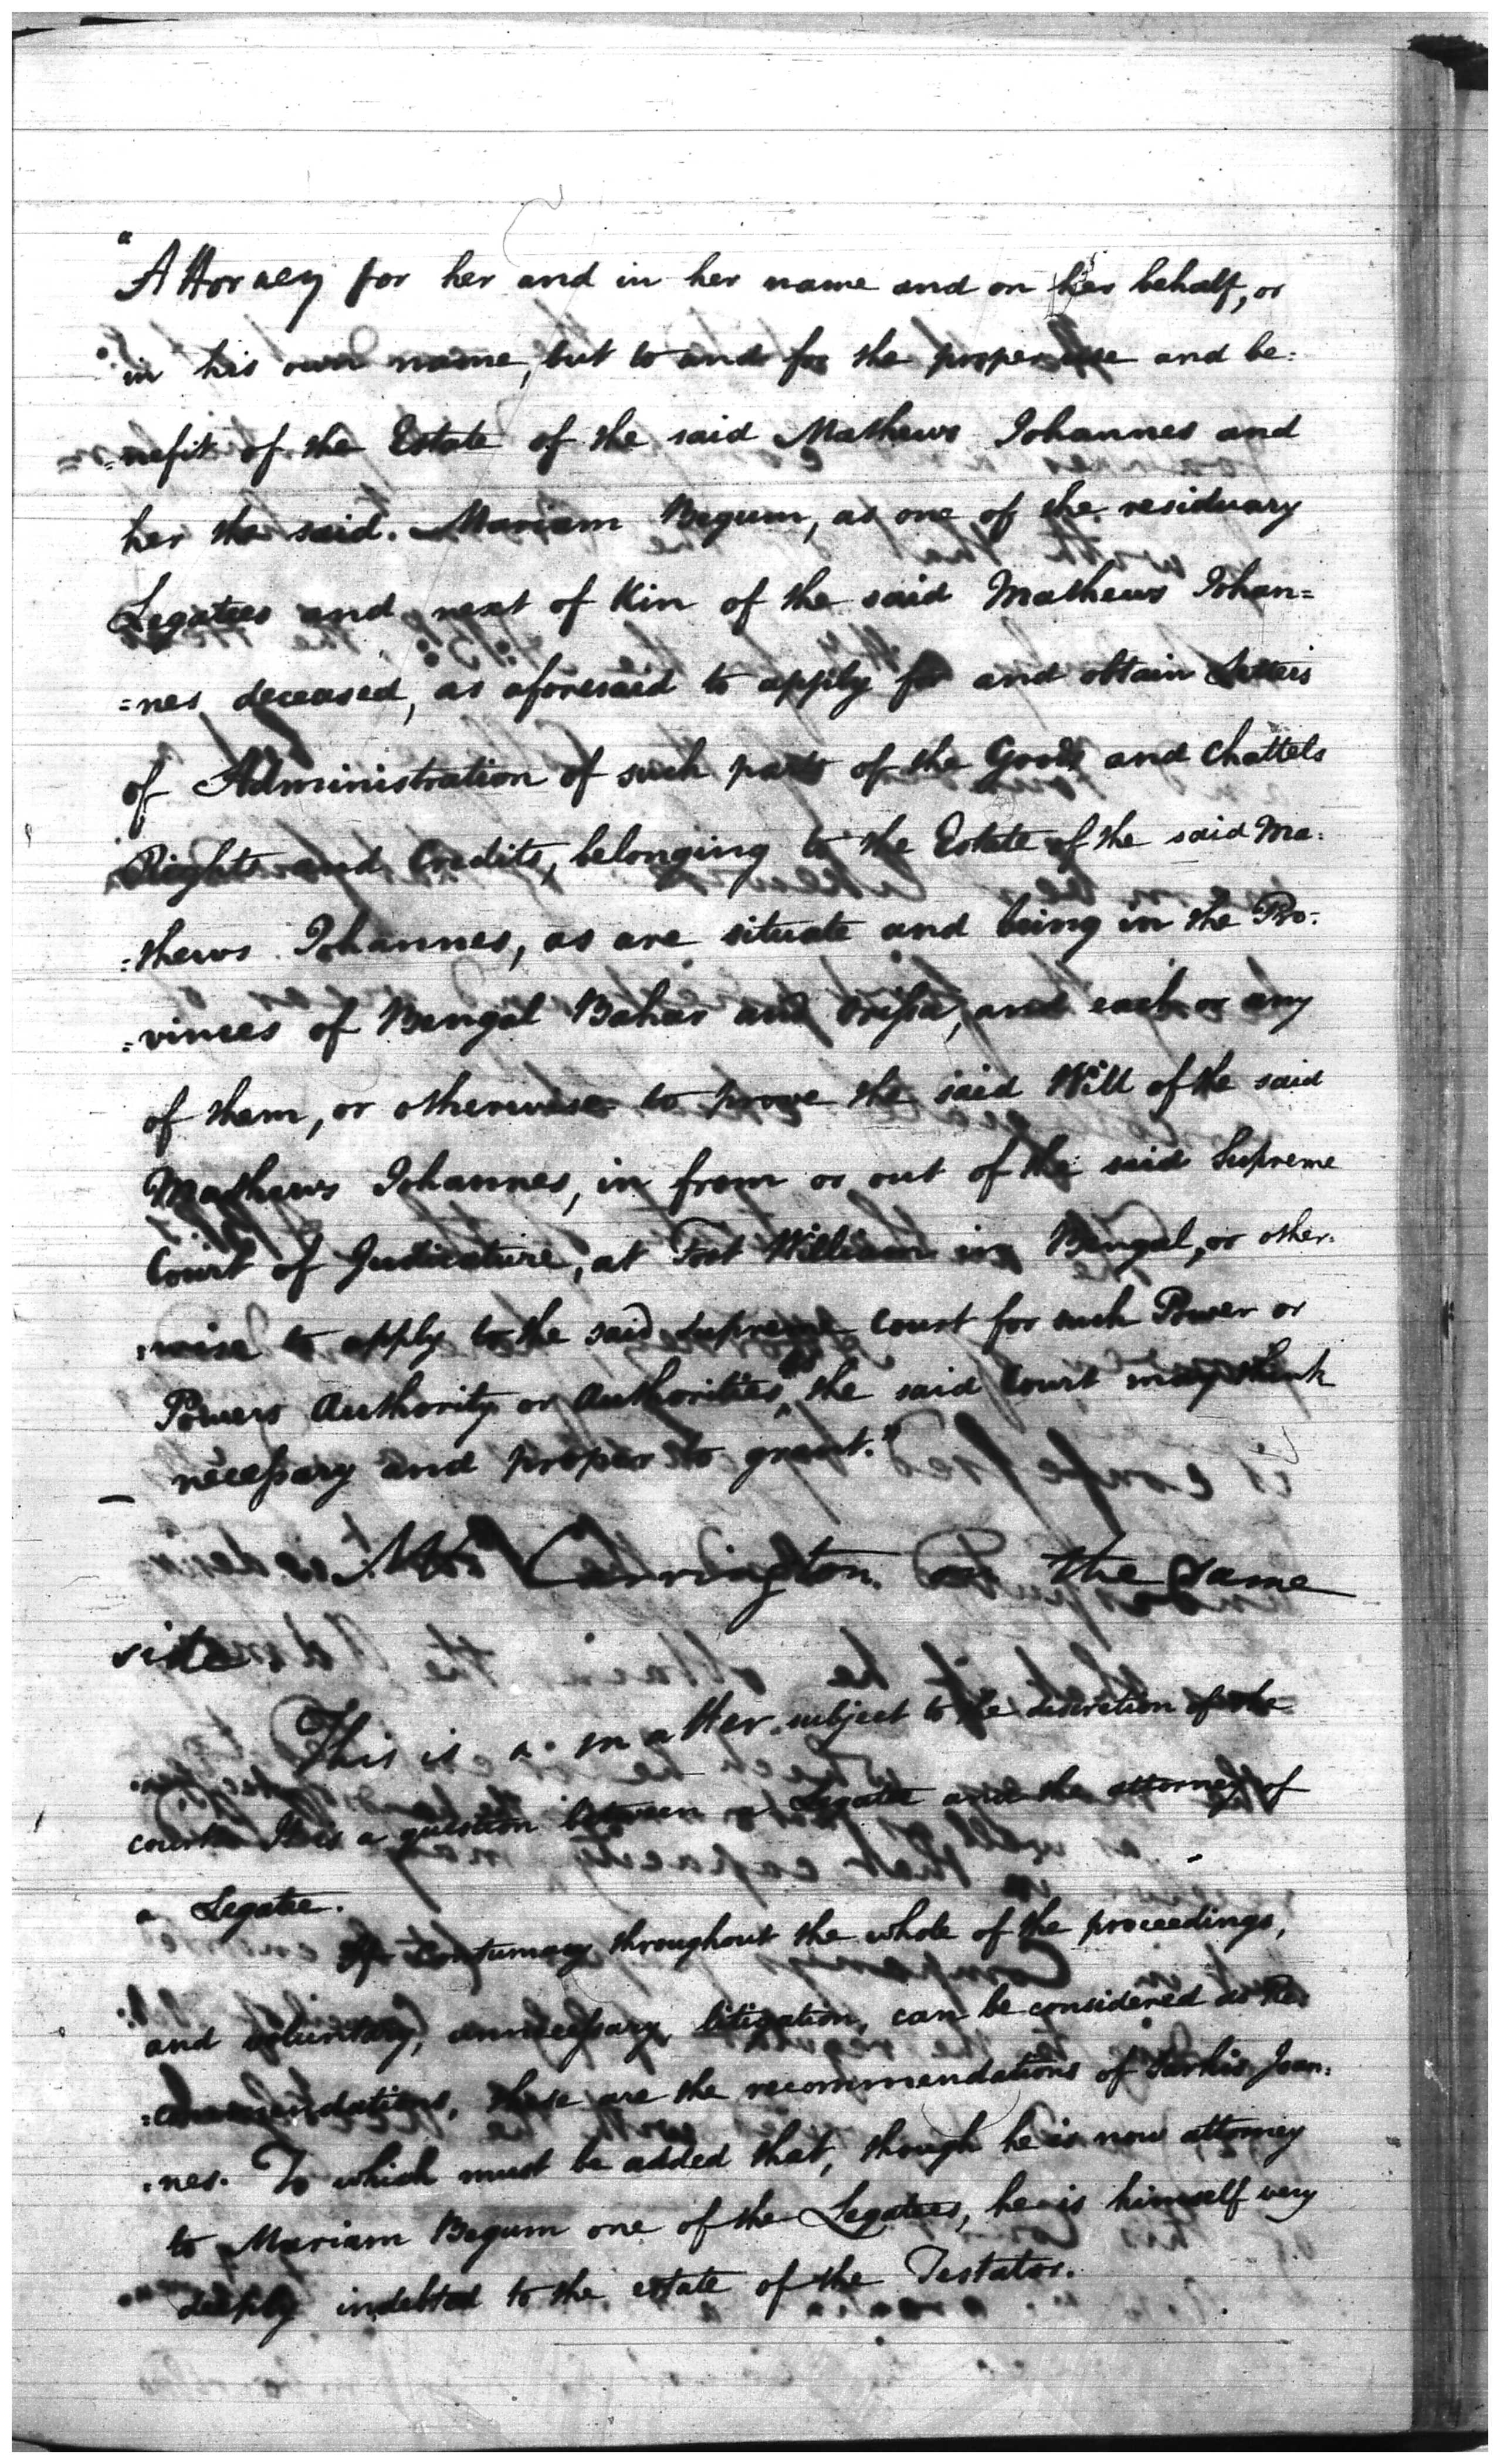 "Attorney for her and in her name and on her behalf, or
"in his own name, but to and for the proper use and be:
=nefit of the Estate of the said Mathews Johannes and
her the said. Mariam Begum, as one of the residuary
Legatees and next of Kin of the said Mathews Johan=
=nes deceased, as aforesaid to apply for and obtain Letters
of Administration of such parts of the Goods and Chattels
Rights and Credits, belonging to the Estate of the said Ma:
:thews Johannes, as are situate and being in the Pro:
:vinces of Bengal Bahar and Orissa, and each or any
of them, or otherwise to prove the said Will of the said
Mathews Johannes, in from or out of the said Supreme
Court of Judicature, at Fort William in Bengal, or other:
:wise to apply to the said Supreme Court for such Power or
Powers Authority or Authorities as the said Court may think
necessary and proper to grant."
Mr Carrington. on the same
side.
This is a matter subject to the discretion of the
court. It is a question between a Legatee and the attorney of
a Legatee.
If contumacy throughout the whole of the proceedings,
and voluntary, unnecessary litigation, can be considered as Re:
:commendations, these are the recommendations of Sarkis Joan:
:nes. To which must be added that, though he is now attorney
to Mariam Begum one of the Legatees, he is himself very
deeply indebted to the estate of the Testator.